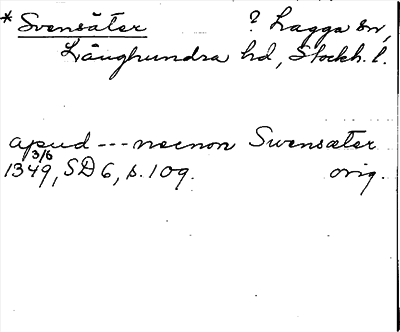 * Svensäter ? Lagga sn,
Långhundra hd, Stockh. l.
apud --- necnon Swensæter
1349 3/6, SD 6, s. 109. orig.